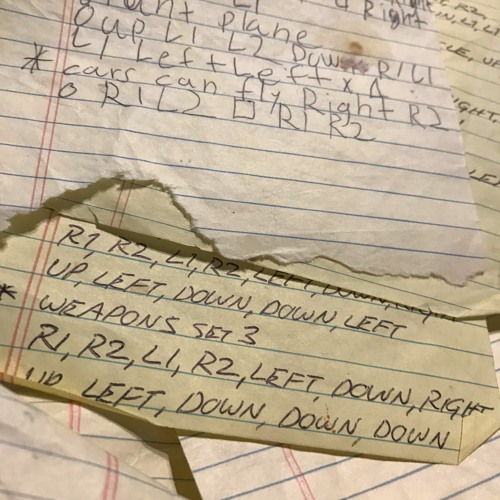 Right
stunt plane
O up L1 L2 Down R1 L1
L1 Left Left X Δ
* cars can fly Right R2
O R1 L2 □ R1 R2
R1, R2, L1, R2, LEFT, DOWN, RIGHT
UP, LEFT, DOWN, DOWN, LEFT
* WEAPONS SET 3
R1, R2, L1, R2, LEFT, DOWN, RIGHT
UP, LEFT, DOWN, DOWN, DOWN